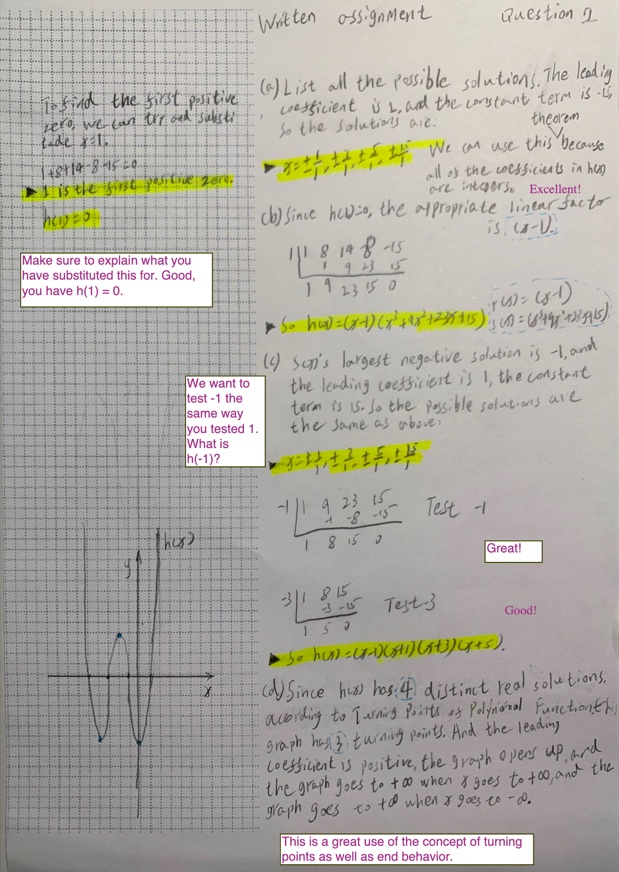 Written assignment Question 1
To find the first positive
zero, we can try and substi
tude x=1.
1+8+14-8-15=0
▶ 1 is the first positive zero.
h(1)=0
Make sure to explain what you
have substituted this for. Good,
you have h(1) = 0.
(a) List all the possible solutions. The leading
coefficient is 1, and the constant term is -15,
so the solutions are:
theorem
▶ x=±1/1, ±3/1, ±5/1, ±15/1
We can use this because
all of the coefficients in h(x)
are integers.
Excellent!
(b) Since h(1)=0, the appropriate linear factor
is (x-1).
1 | 1 8 14 -8 -15
1 9 23 15
1 9 23 15 0
▶ So h(x)=(x-1)(x³+9x²+23x+15)
r(x)=(x-1)
s(x)=(x³+9x²+23x+15)
(c) S(x)'s largest negative solution is -1, and
the leading coefficient is 1, the constant
term is 15. So the possible solutions are
the same as above:
We want to
test -1 the
same way
you tested 1.
What is
h(-1)?
▶ x=±1/1, ±3/1, ±5/1, ±15/1
-1 | 1 9 23 15
-1 -8 -15
1 8 15 0
Test -1
Great!
-3 | 1 8 15
-3 -15
1 5 0
Test-3
Good!
▶ So h(x)=(x-1)(x+1)(x+3)(x+5).
h(x)
y
x
(d) Since h(x) has 4 distinct real solutions,
according to Turning Points of Polynomial Function, this
graph has 3 turning points. And the leading
coefficient is positive, the graph opens up, and
the graph goes to +∞ when x goes to +∞, and the
graph goes to +∞ when x goes to -∞.
This is a great use of the concept of turning
points as well as end behavior.